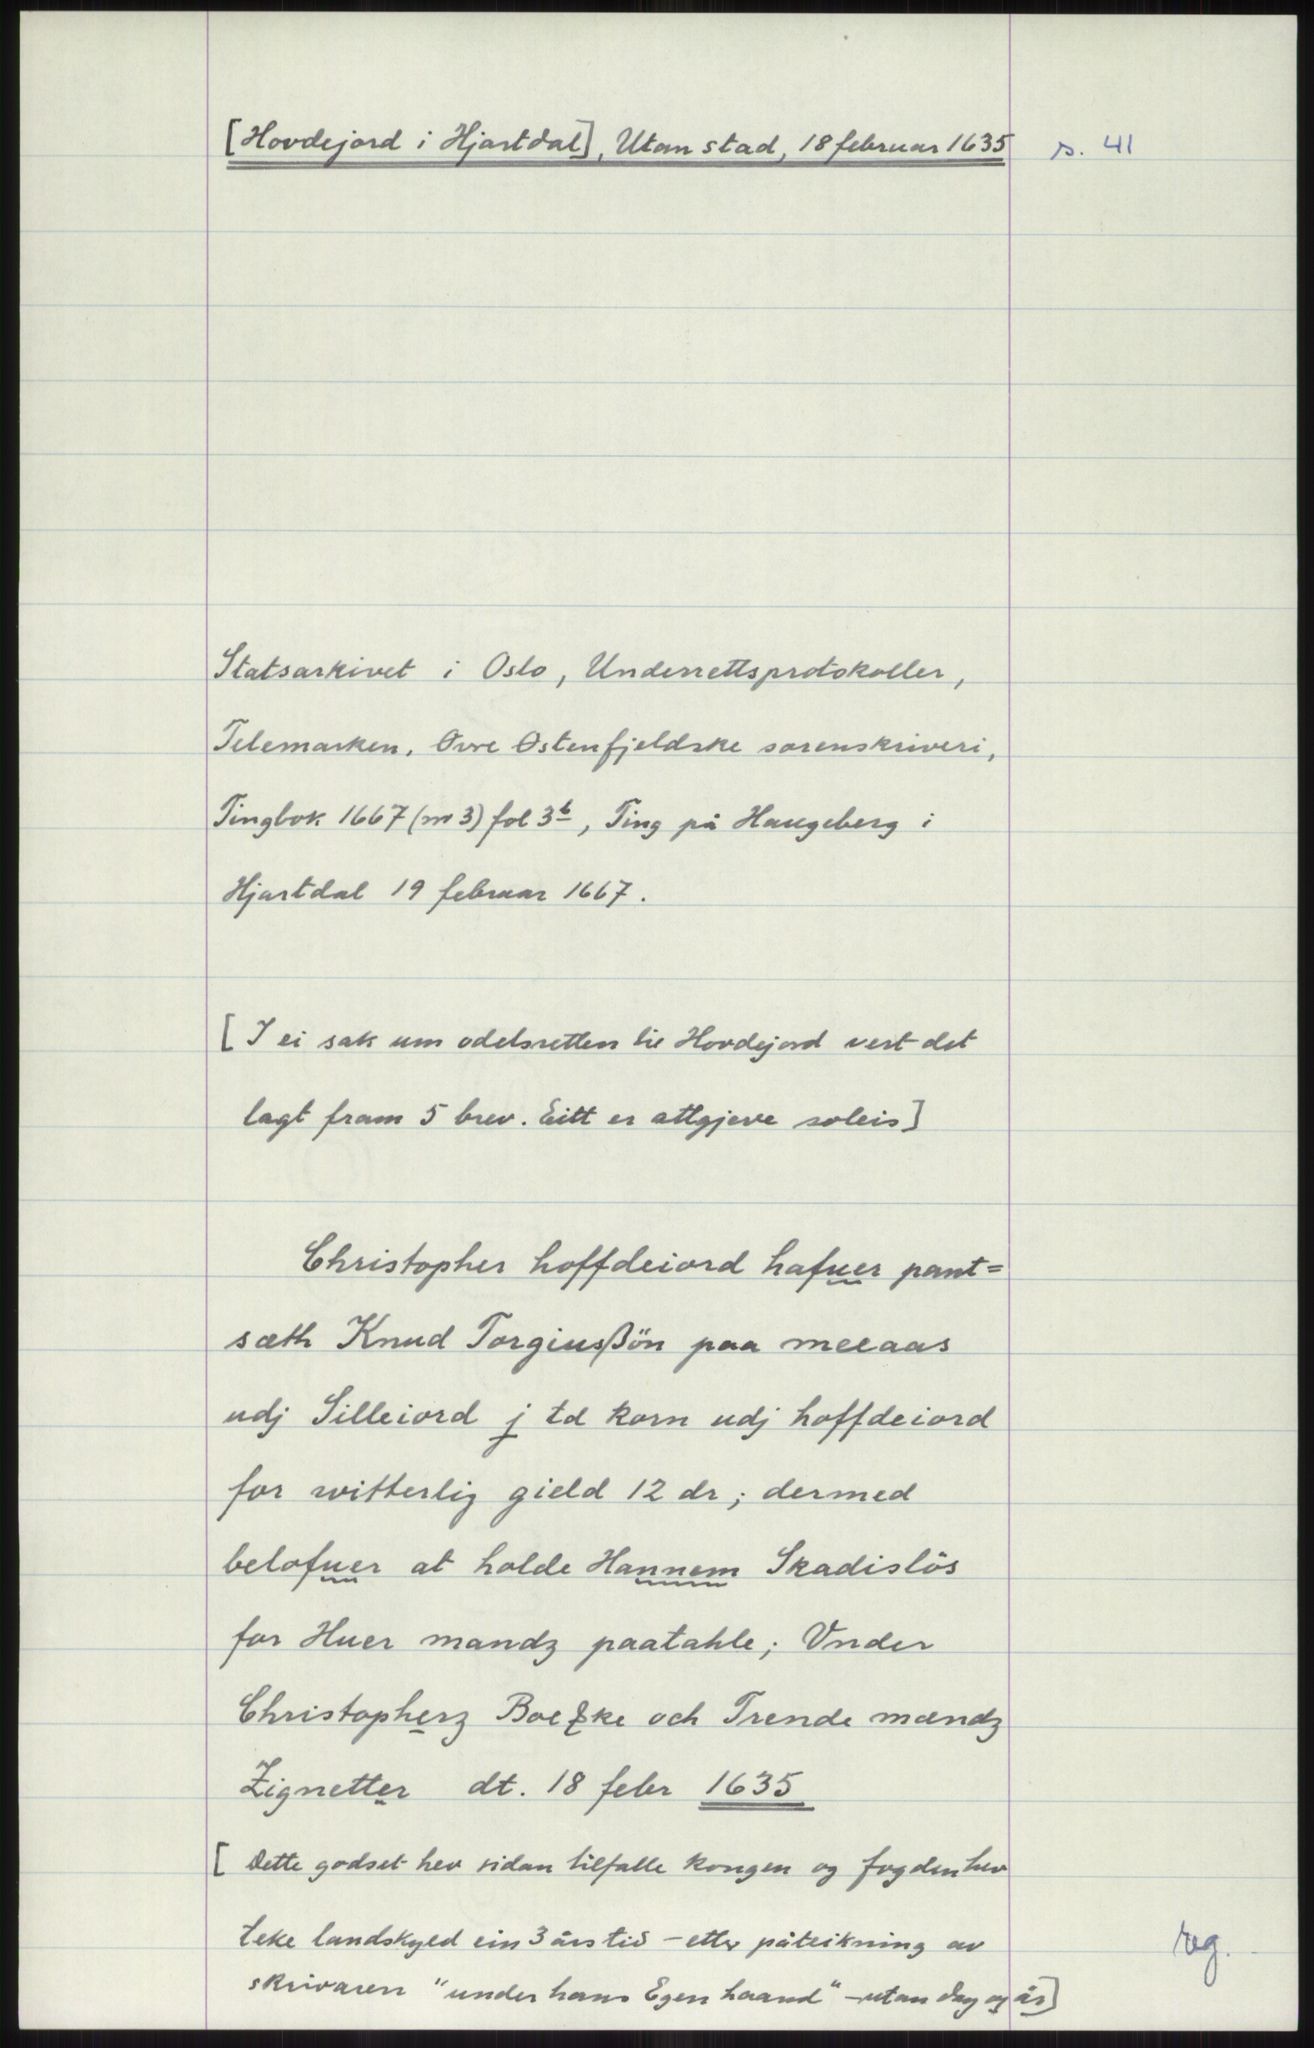 [Hovdejord i Hjartdal], Utan stad, 18 februar 1635 s. 41
Statsarkivet i Oslo, Underrettsprotokoller,
Telemarken, Øvre Østenfjeldske sorenskriveri,
Tingbok 1667 (nr 3) fol 3b, Ting på Haugeberg i
Hjartdal 19 februar 1667.
[I ei sak um odelsretten til Hovdejord vert det
lagt fram 5 brev. Eitt er attgjeve soleis]
Christopher hoffdeiord hafuer pant=
sæth Knud Torgiusßön paa meeaas
udj Silleiord j td korn udj hoffdeiord
for witterlig gield 12 dr; dermed
belofuer at holde Hannem Skadislös
for Huer mandz paatahle; Vnder
Christopherz Boeßke och Trende mændz
Zignetter dt. 18 febr 1635
[Dette godset hev sidan tilfalle kongen og fogden hev
teke landskyld ein 3 års tid – etter påteikning av
skrivaren "under hans Egen haand" – utan dag og år]
reg.